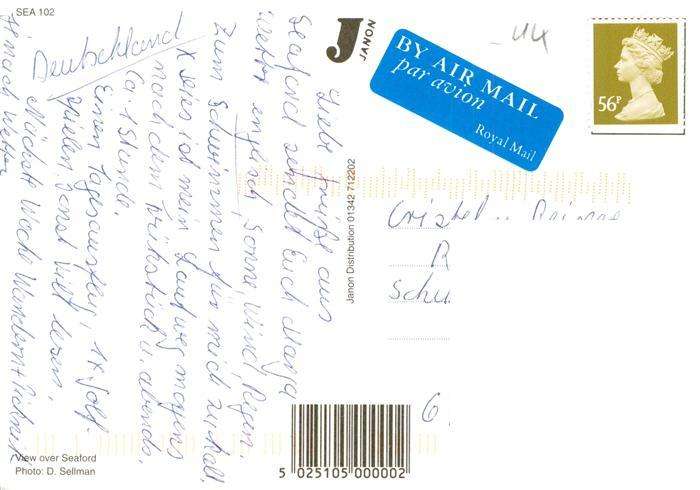 SEA 102
Deutschland
J
JANON
BY AIR MAIL
par avion
Royal Mail
56P
Liebe Grüße aus
Seaford sendet Euch
Wetter Sonne, Wind, Regen
Zum Schwimmen für mich zu kalt.
X dies ist mein Laufweg morgens
nach dem Frühstück u. abends.
Ca. 1 Stunde.
Einen Tagesausflug, 1x Golf
spielen, sonst viel lesen.
Nächste Woche Wandern +
Wetter
Janon Distribution 01342 712202
Cristel u.
R
Schu
6
View over Seaford
Photo: D. Sellman
5 025105 000002